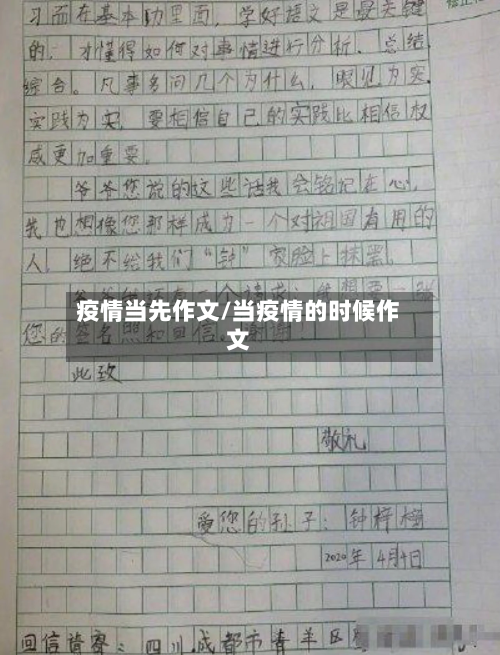 习而在基本功里面，学好语文是最关键
的，才懂得如何对事情进行分析、总结、
综合。凡事多问几个为什么，眼见为实，
实践为实，要相信自己的实践比相信权
威更加重要。
爷爷您说的这些话我会铭记在心，
我也想像您那样成为一个对祖国有用的
人，绝不给我们“钟”家脸上抹黑。
疫情当先作文/当疫情的时候作
文
您的签名照和回信。谢谢
此致
敬礼
爱您的孙子：钟梓
2020年4月4日
回信皆寄：四川成都市青羊区